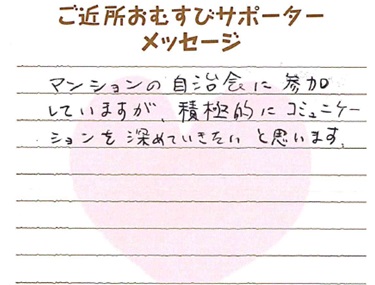 ご近所おむすびサポーター
メッセージ
マンションの自治会に参加
していますが、積極的にコミュニケー
ションを深めていきたいと思います。